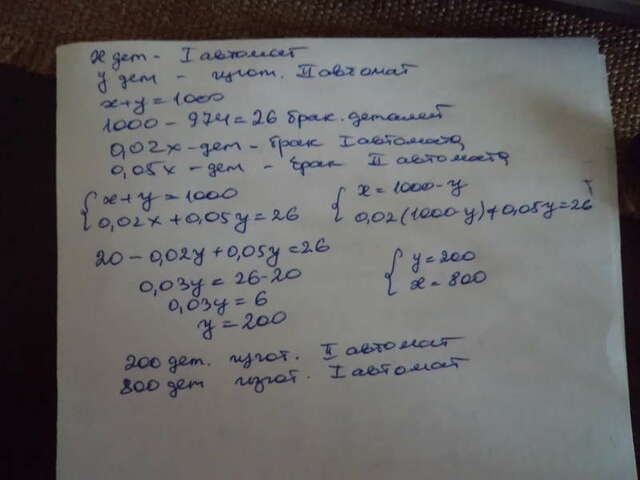 x дет - I автомат
y дет - изгот. II автомат
x+y=1000
1000 - 974 = 26 брак. деталей
0,02x - дет - брак I автомата
0,05x - дет - брак II автомата
{ x+y=1000
0,02x+0,05y=26
{ x=1000-y
0,02(1000-y)+0,05y=26
20-0,02y+0,05y=26
0,03y=26-20
0,03y=6
y=200
{ y=200
x=800
200 дет. изгот. II автомат
800 дет изгот. I автомат